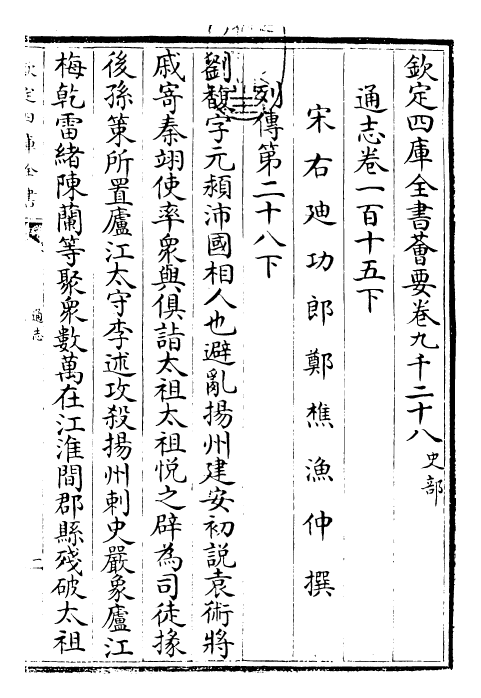 欽定四庫全書薈要卷九千二十八 史部
通志卷一百十五下
宋右迪功郎鄭樵漁仲撰
列傳第二十八下
劉馥字元頴沛國相人也避亂揚州建安初説袁術將
戚寄秦翊使率衆與俱詣太祖太祖悦之辟為司徒掾
後孫策所置廬江太守李述攻殺揚州刺史嚴象廬江
梅乾雷緒陳蘭等聚衆數萬在江淮間郡縣殘破太祖
欽定四庫全書
通志